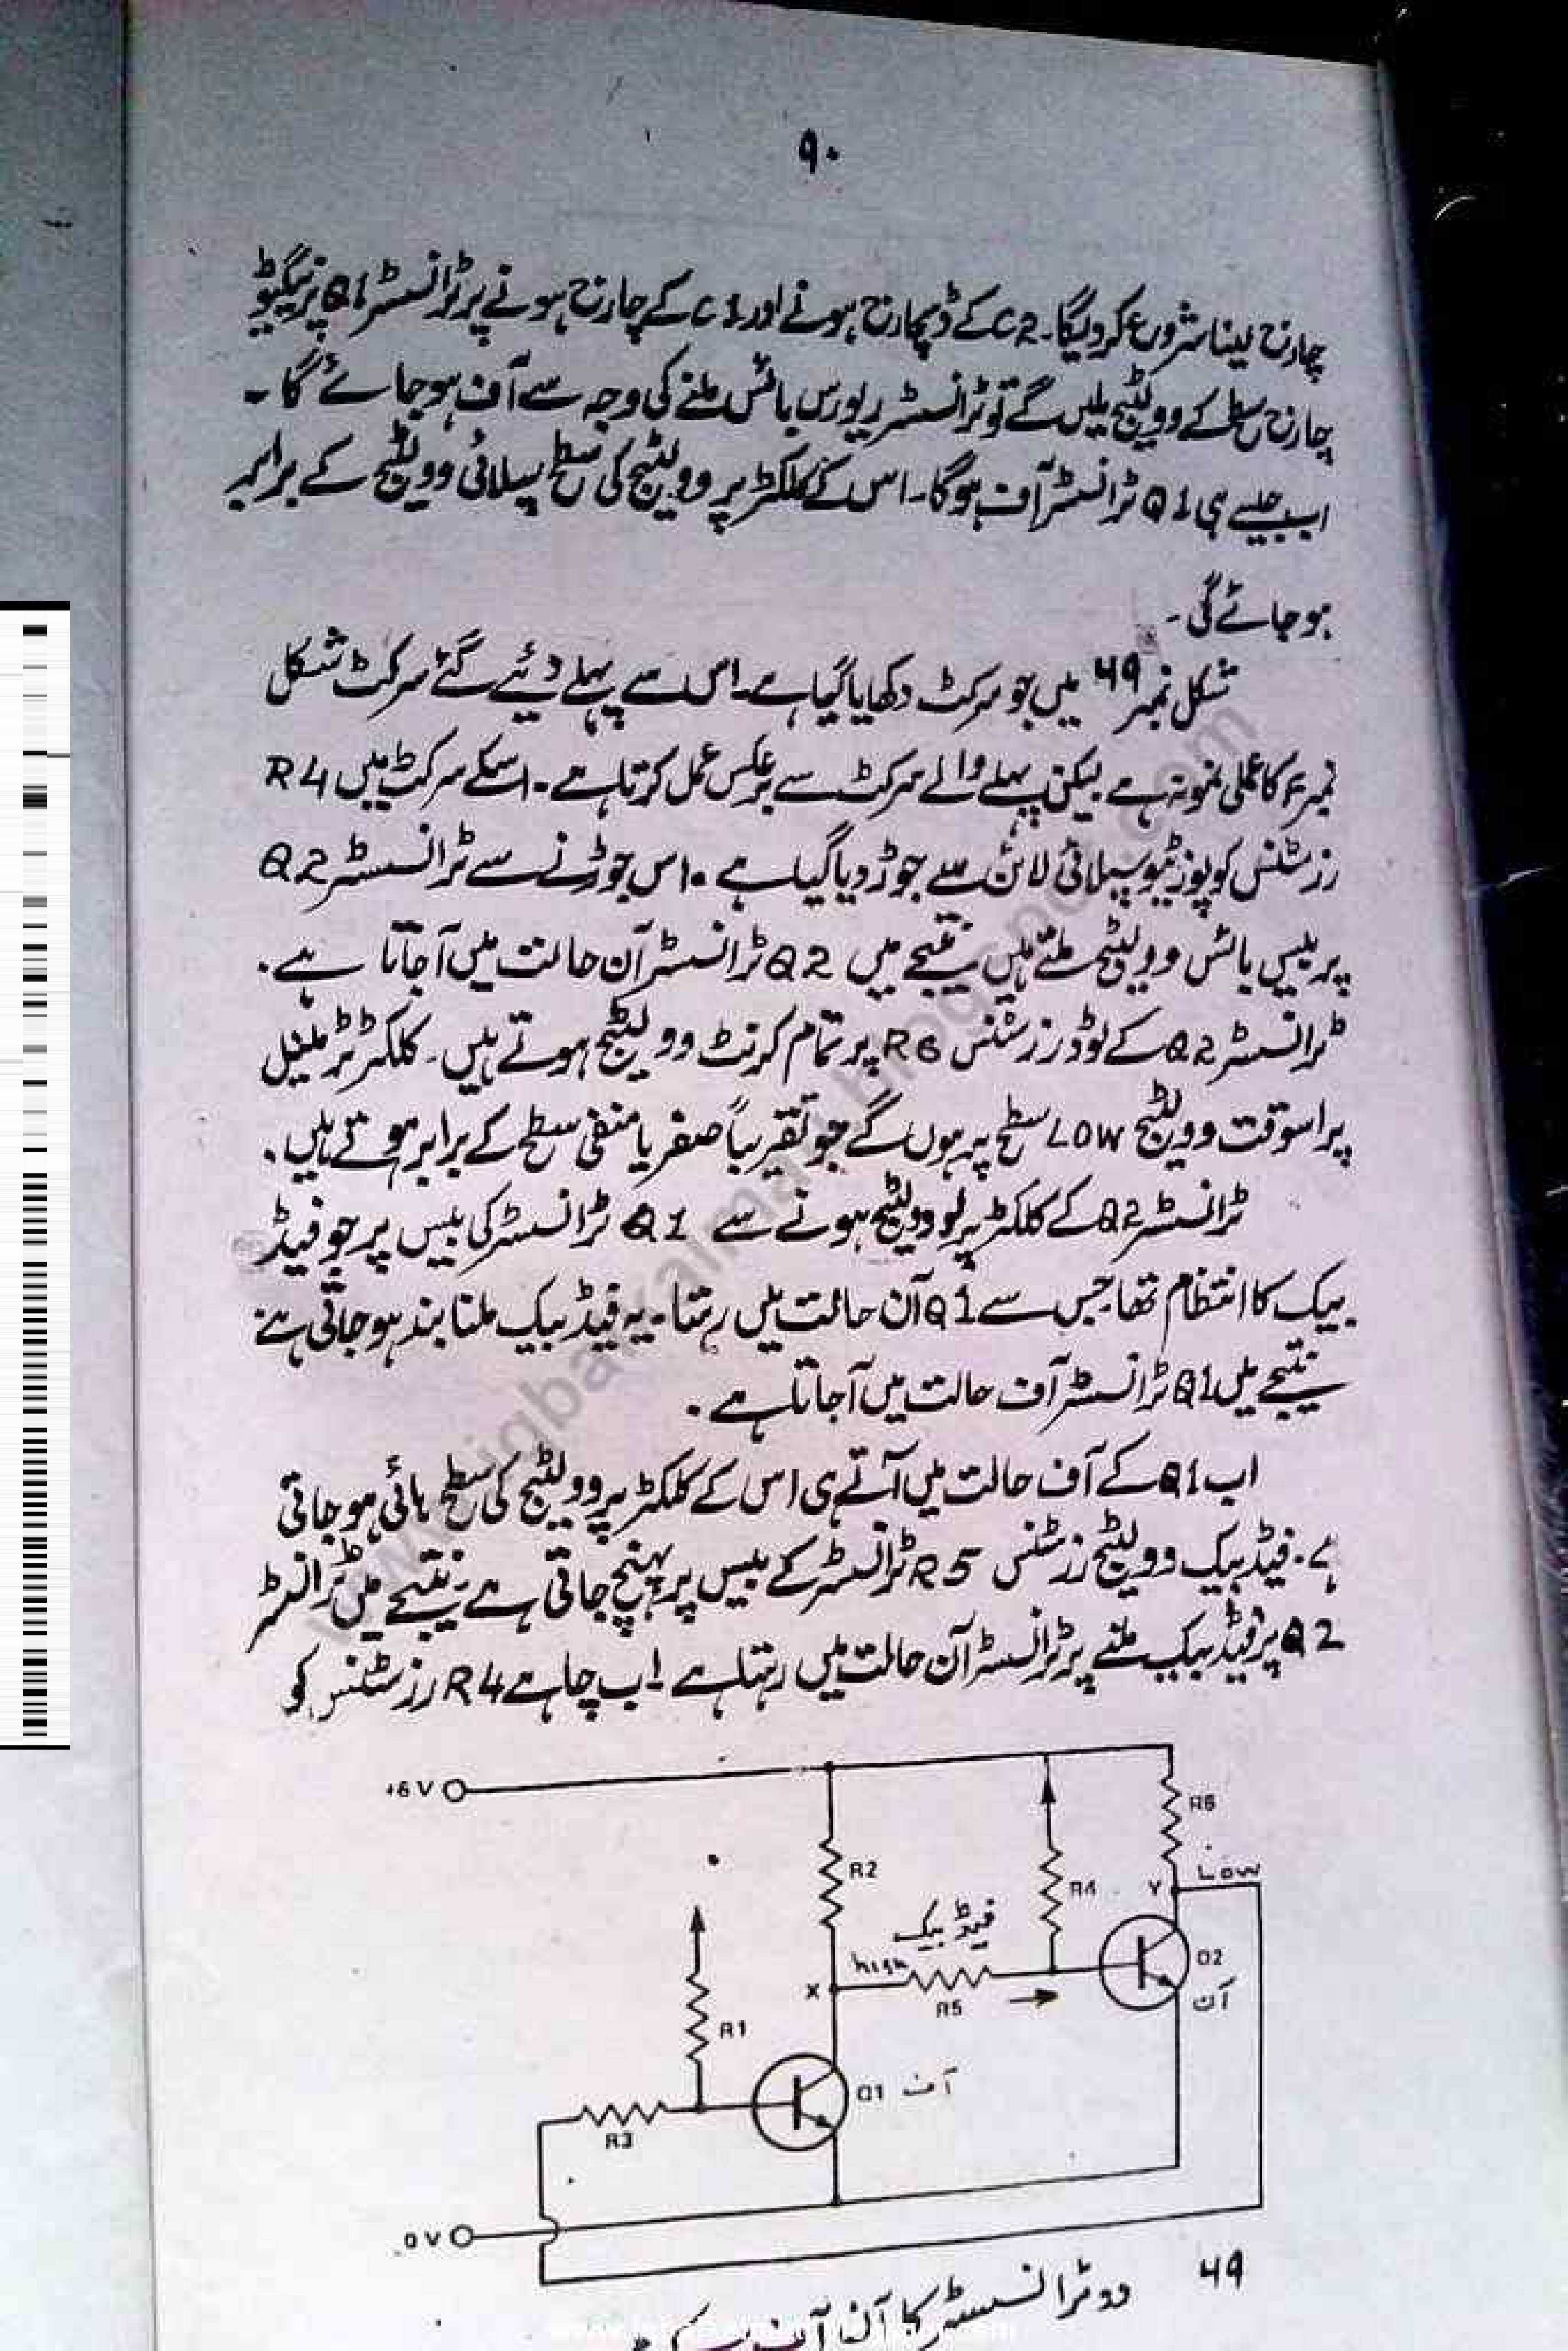 ۹۰
چارج لینا شروع کر دیگا۔ C2 کے ڈسچارج ہونے اور C1 کے چارج ہونے پر ٹرانسسٹر Q1 پر نیگیٹو
چارج سطح کے وولٹیج ملیں گے تو ٹرانسسٹر ریورس بائس ملنے کی وجہ سے آف ہو جائے گا۔
اب جیسے ہی Q1 ٹرانسسٹر آف ہوگا۔ اس کے کلکٹر پر وولٹیج کی سطح سپلائی وولٹیج کے برابر
ہو جائے گی۔
شکل نمبر ۴۹ میں جو سرکٹ دکھایا گیا ہے۔ اس سے پہلے دئیے گئے سرکٹ شکل
نمبر کا عملی نمونہ ہے لیکن پہلے والے سرکٹ سے برعکس عمل کرتا ہے۔ اسکے سرکٹ میں R4
رزسٹنس کو پوزیٹیو سپلائی لائن سے جوڑ دیا گیا ہے۔ اس جوڑنے سے ٹرانسسٹر Q2
پر بیس بائس وولٹیج ملتے ہیں نتیجے میں Q2 ٹرانسسٹر آن حالت میں آ جاتا ہے۔
ٹرانسسٹر Q2 کے لوڈ رزسٹنس R6 پر تمام کرنٹ وولٹیج ہوتے ہیں۔ کلکٹر ٹرمینل
پر اسوقت وولٹیج LOW سطح پہ ہوں گے جو تقریباً صفر یا منفی سطح کے برابر ہوتے ہیں۔
ٹرانسسٹر Q2 کے کلکٹر پر لو وولٹیج ہونے سے Q1 ٹرانسسٹر کی بیس پر جو فیڈ
بیک کا انتظام تھا جس سے Q1 آن حالت میں رہتا۔ یہ فیڈ بیک ملنا بند ہو جاتی ہے۔
نتیجے میں Q1 ٹرانسسٹر آف حالت میں آ جاتا ہے۔
اب Q1 کے آف حالت میں آتے ہی اس کے کلکٹر پر وولٹیج کی سطح ہائی ہو جاتی
ہے۔ فیڈ بیک وولٹیج رزسٹنس R5 ٹرانسسٹر کے بیس پر پہنچ جاتی ہے۔ نتیجے میں ٹرانسسٹر
Q2 پر فیڈ بیک ملنے پر ٹرانسسٹر آن حالت میں رہتا ہے۔ اب چاہے R4 رزسٹنس کو
+6 V
R6
Low
R2
R4
Y
فیڈ بیک
high
Q2
X
R5
آن
R1
Q1 آف
R3
0 V
۴۹
دو ٹرانسسٹر کا آن آف